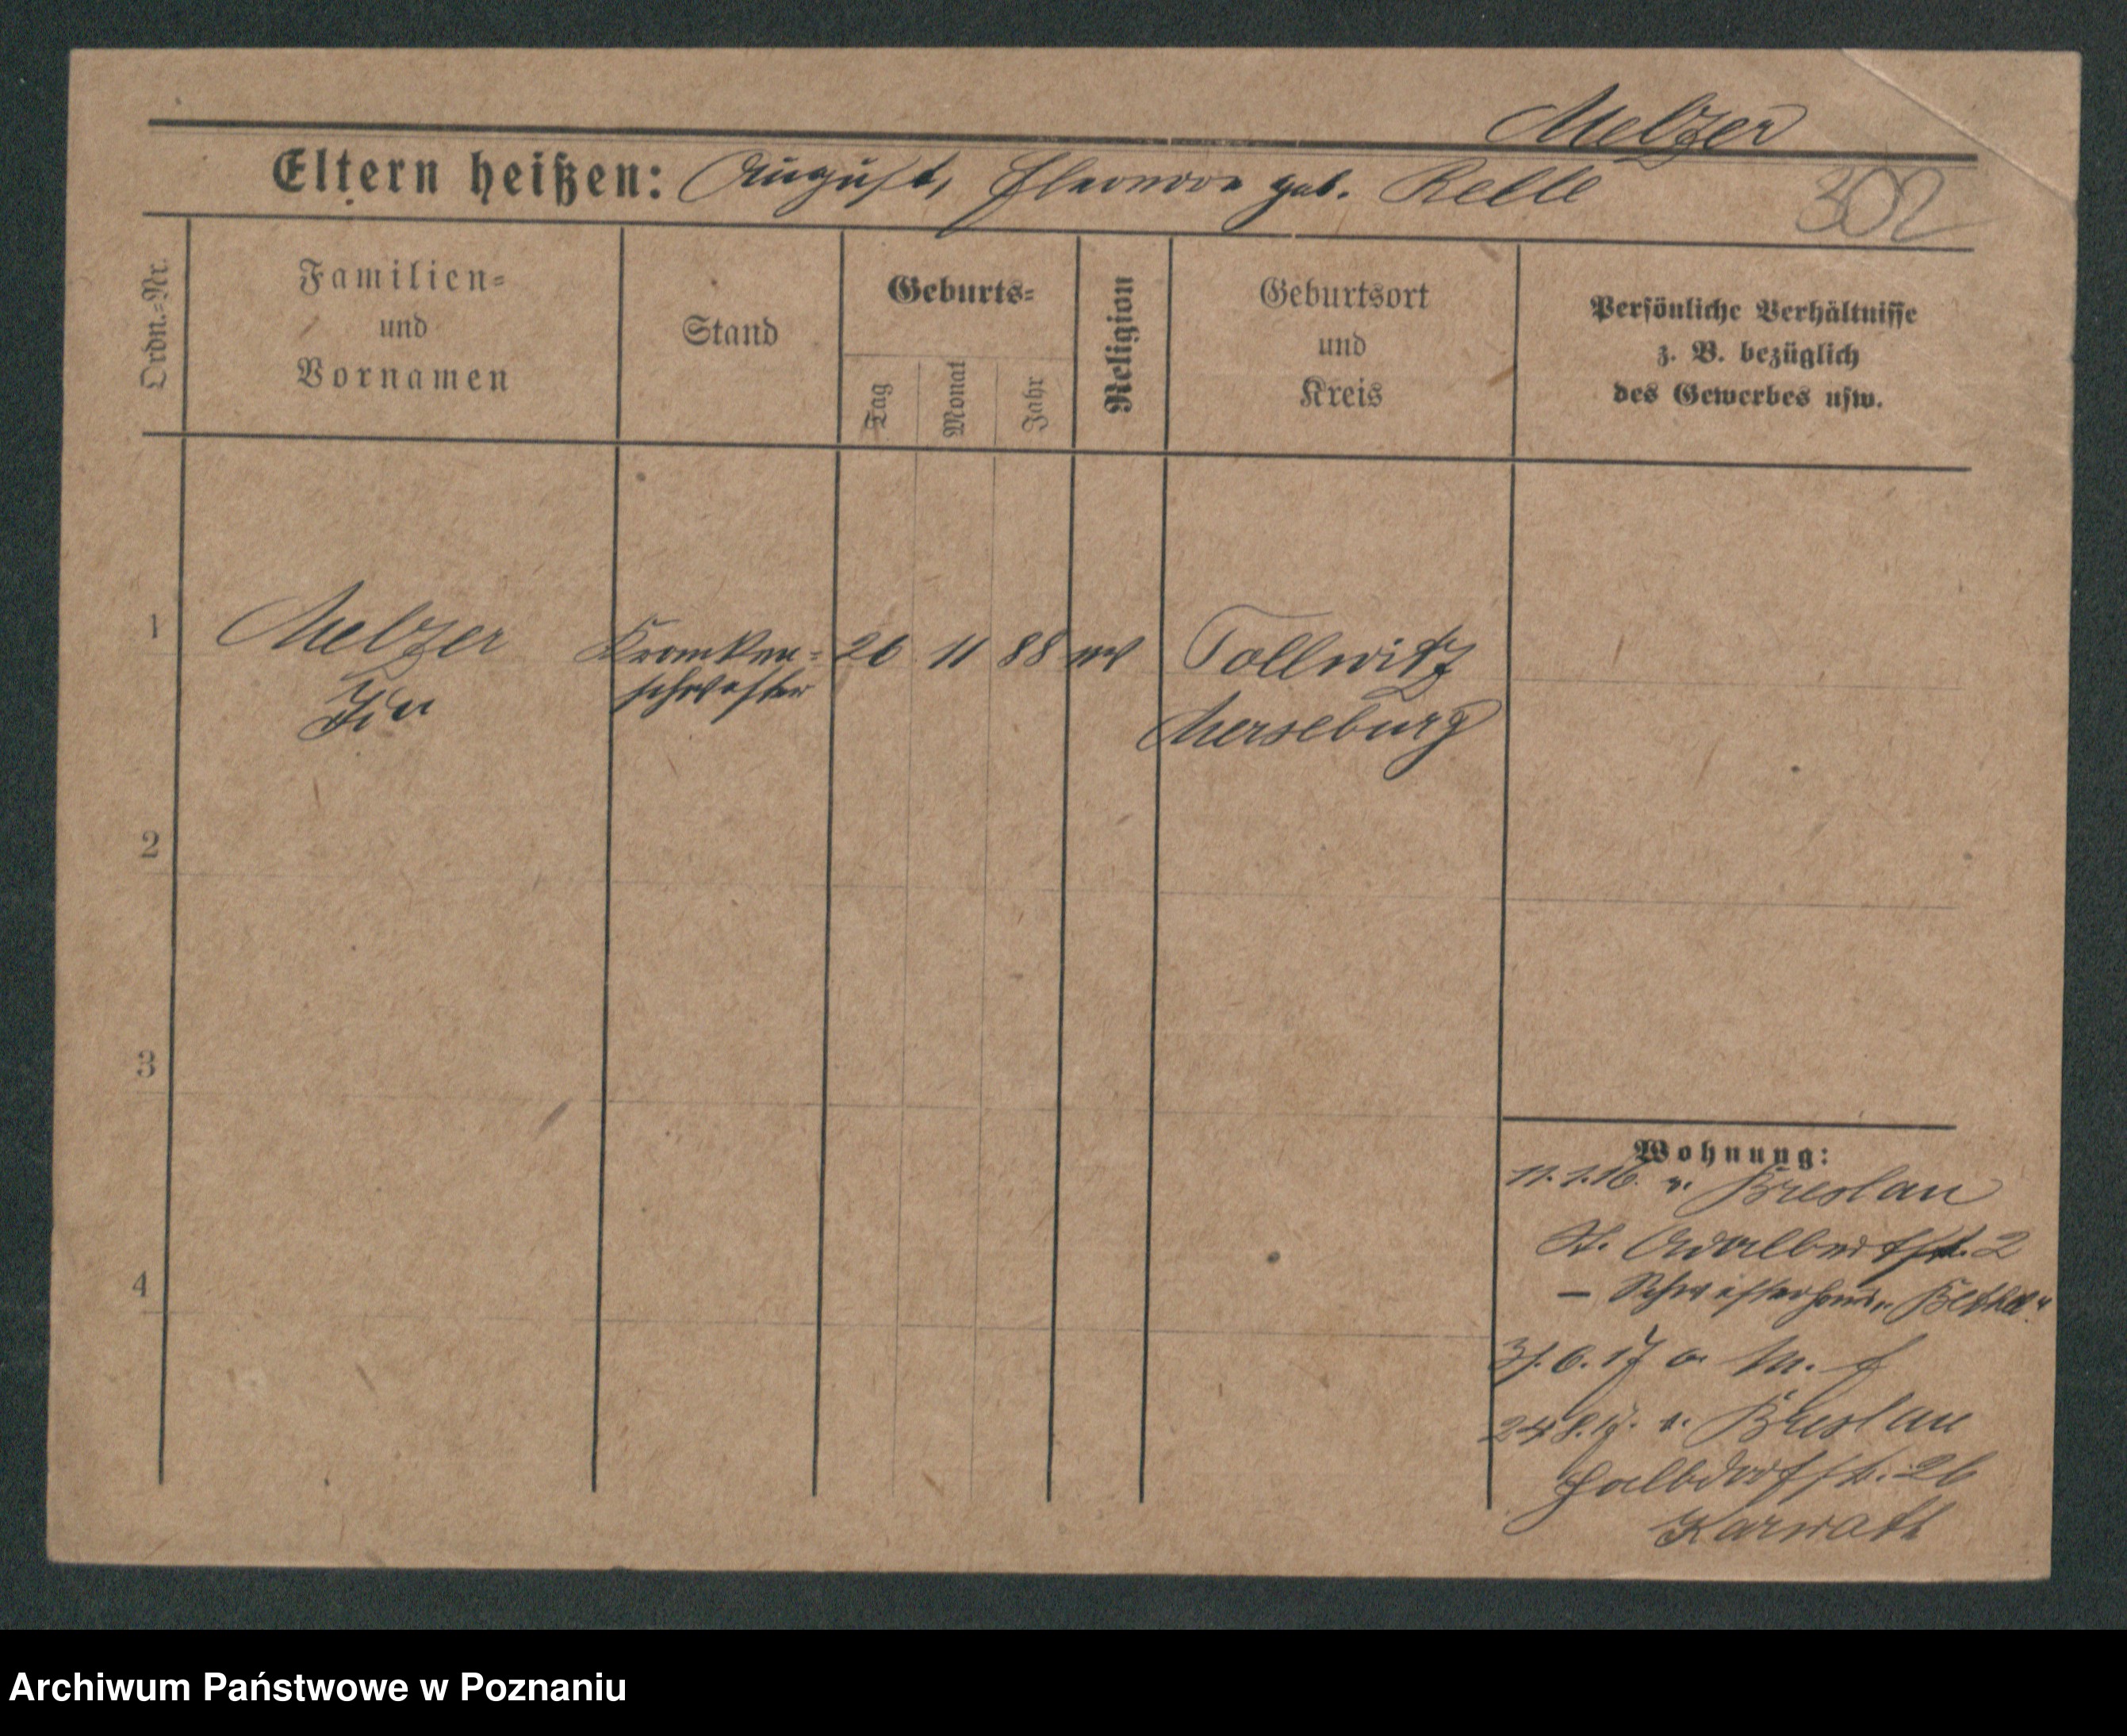 Melzer
Eltern heißen: August, Eleonore geb. Relle
302
Ordn.=Nr.
Familien=
und
Vornamen
Stand
Geburts=
Tag
Monat
Jahr
Religion
Geburtsort
und
Kreis
Persönliche Verhältnisse
z. B. bezüglich
des Gewerbes usw.
1
Melzer
Ida
Kranken=
schwester
26 11 88 ev
Tollwitz
Merseburg
2
3
4
Wohnung:
11.1.16. v. Breslau
St. Adalbertstr. 2
— Schwesternheim
6. 17
8. 17. v. Breslau
Halbdorfstr. 26
Karwath
Archiwum Państwowe w Poznaniu